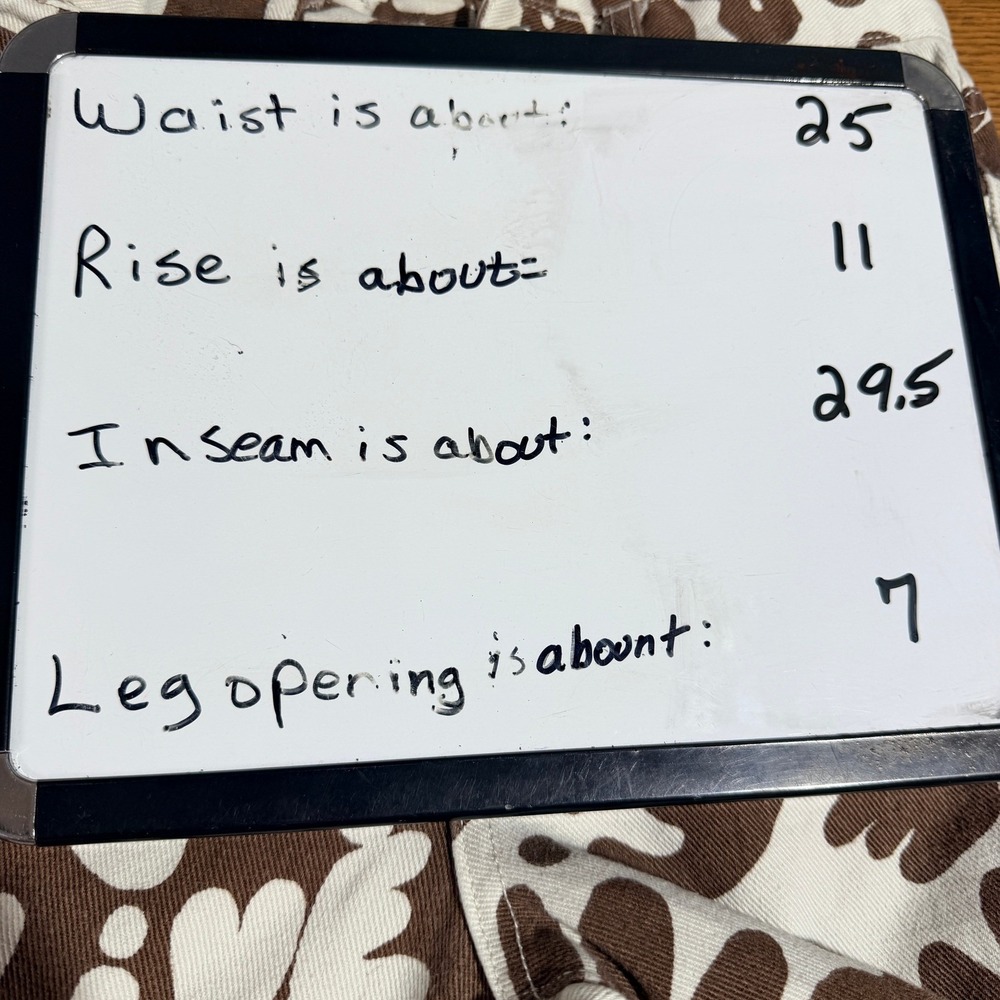 Waist is about: 25
Rise is about= 11
Inseam is about: 29.5
Leg opening is abount: 7